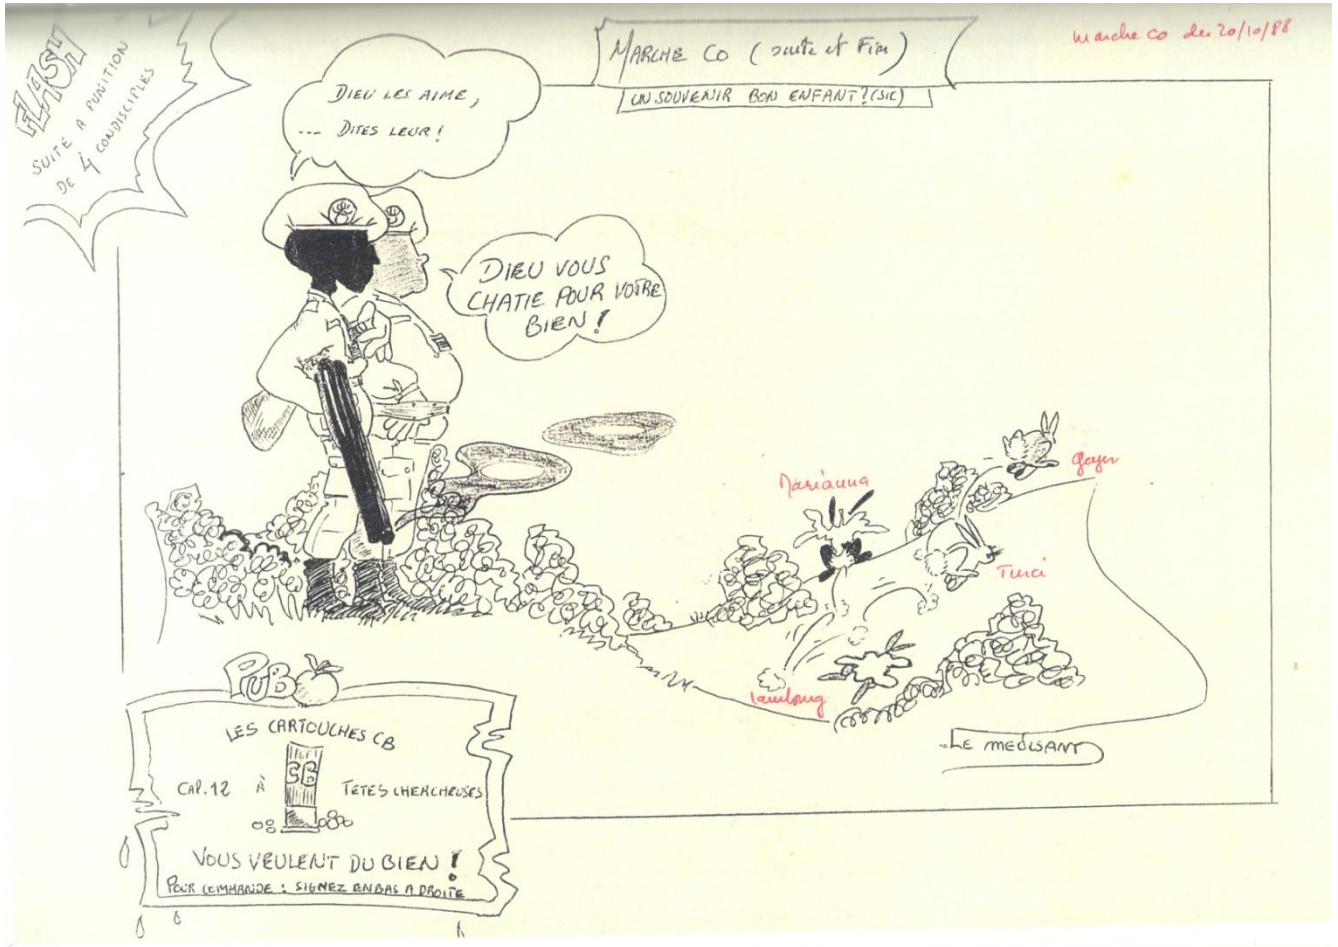 FLASH
SUITE A PUNITION
DE 4 CONDISCIPLES
MARCHE CO (suite et Fin)
UN SOUVENIR BON ENFANT? (SIC)
marche co du 20/10/88
DIEU LES AIME,
... DITES LEUR !
DIEU VOUS
CHATIE POUR VOTRE
BIEN !
Marianna
Turci
LE MEDISANT
PUB
LES CARTOUCHES CB
CAL.12 À CB TETES CHERCHEUSES
VOUS VEULENT DU BIEN !
POUR COMMANDE : SIGNEZ EN BAS A DROITE